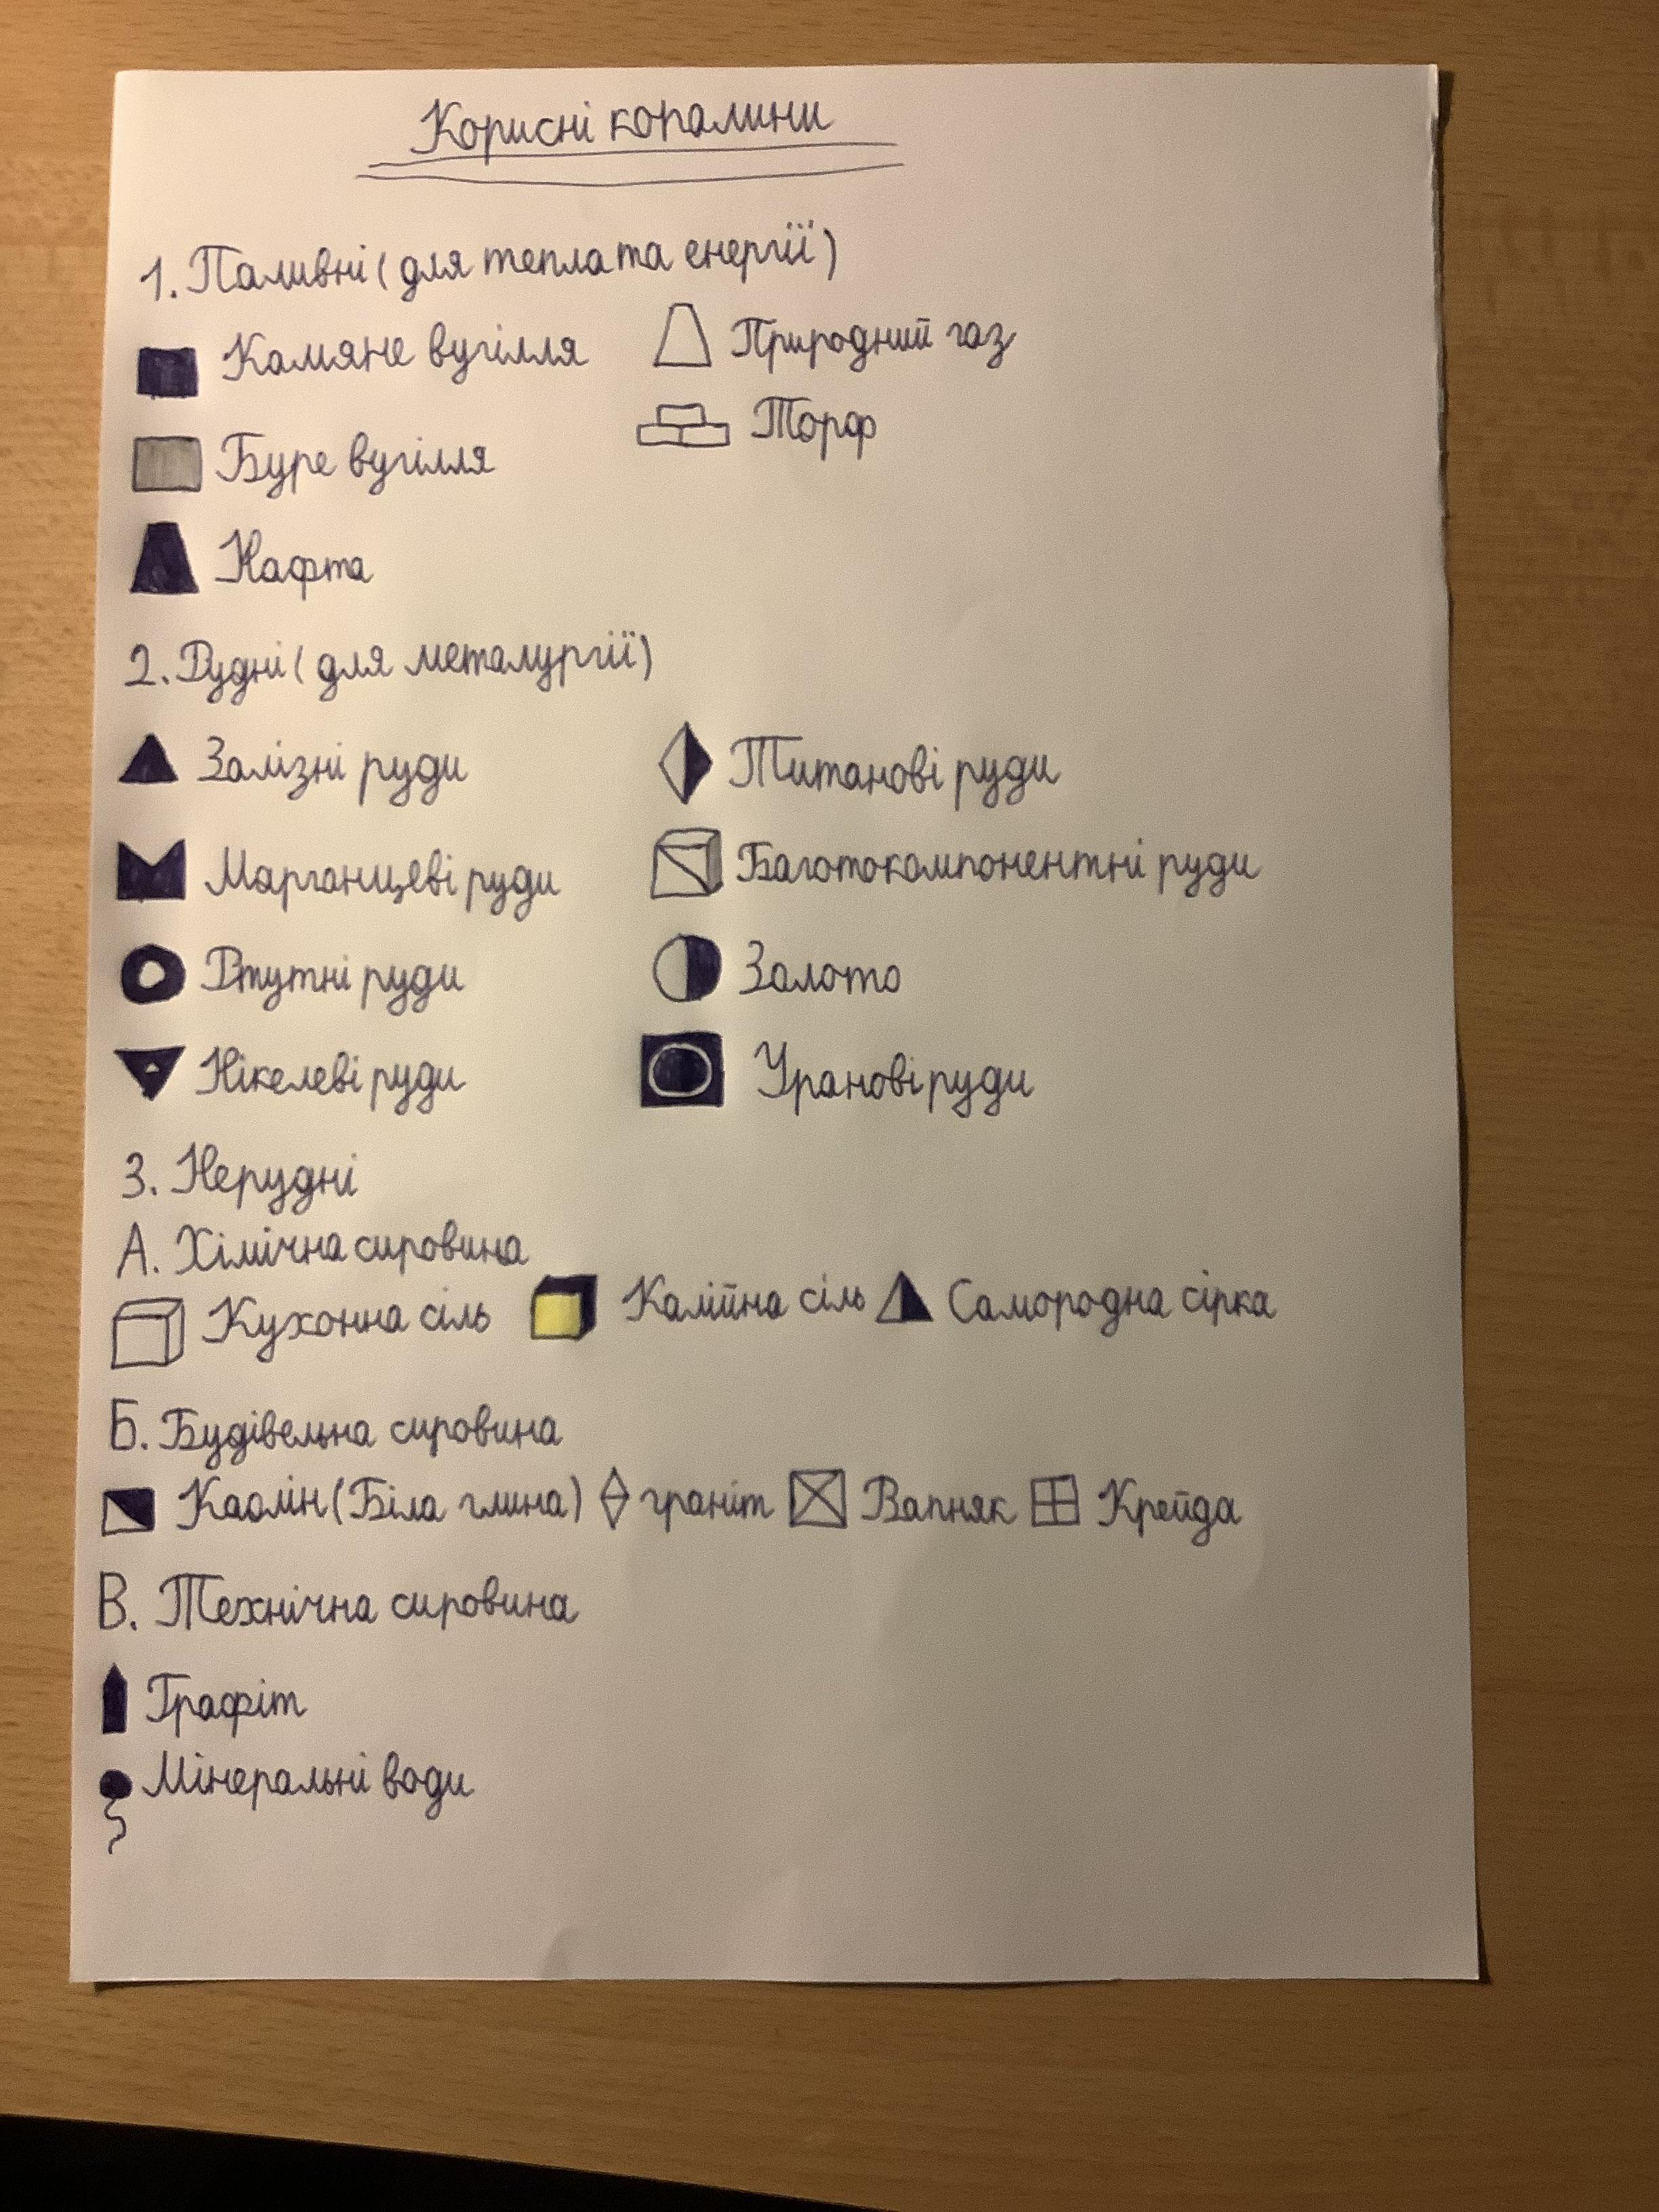 Корисні копалини
1. Паливні (для тепла та енергії)
Камяне вугілля Природний газ
Буре вугілля Торф
Нафта
2. Рудні (для металургії)
Залізні руди Титанові руди
Марганцеві руди Баготокомпонентні руди
Ртутні руди Золото
Нікелеві руди Уранові руди
3. Нерудні
А. Хімічна сировина
Кухонна сіль Калійна сіль Самородна сірка
Б. Будівельна сировина
Каолін (Біла глина) граніт Вапняк Крейда
В. Технічна сировина
Графіт
Мінеральні води